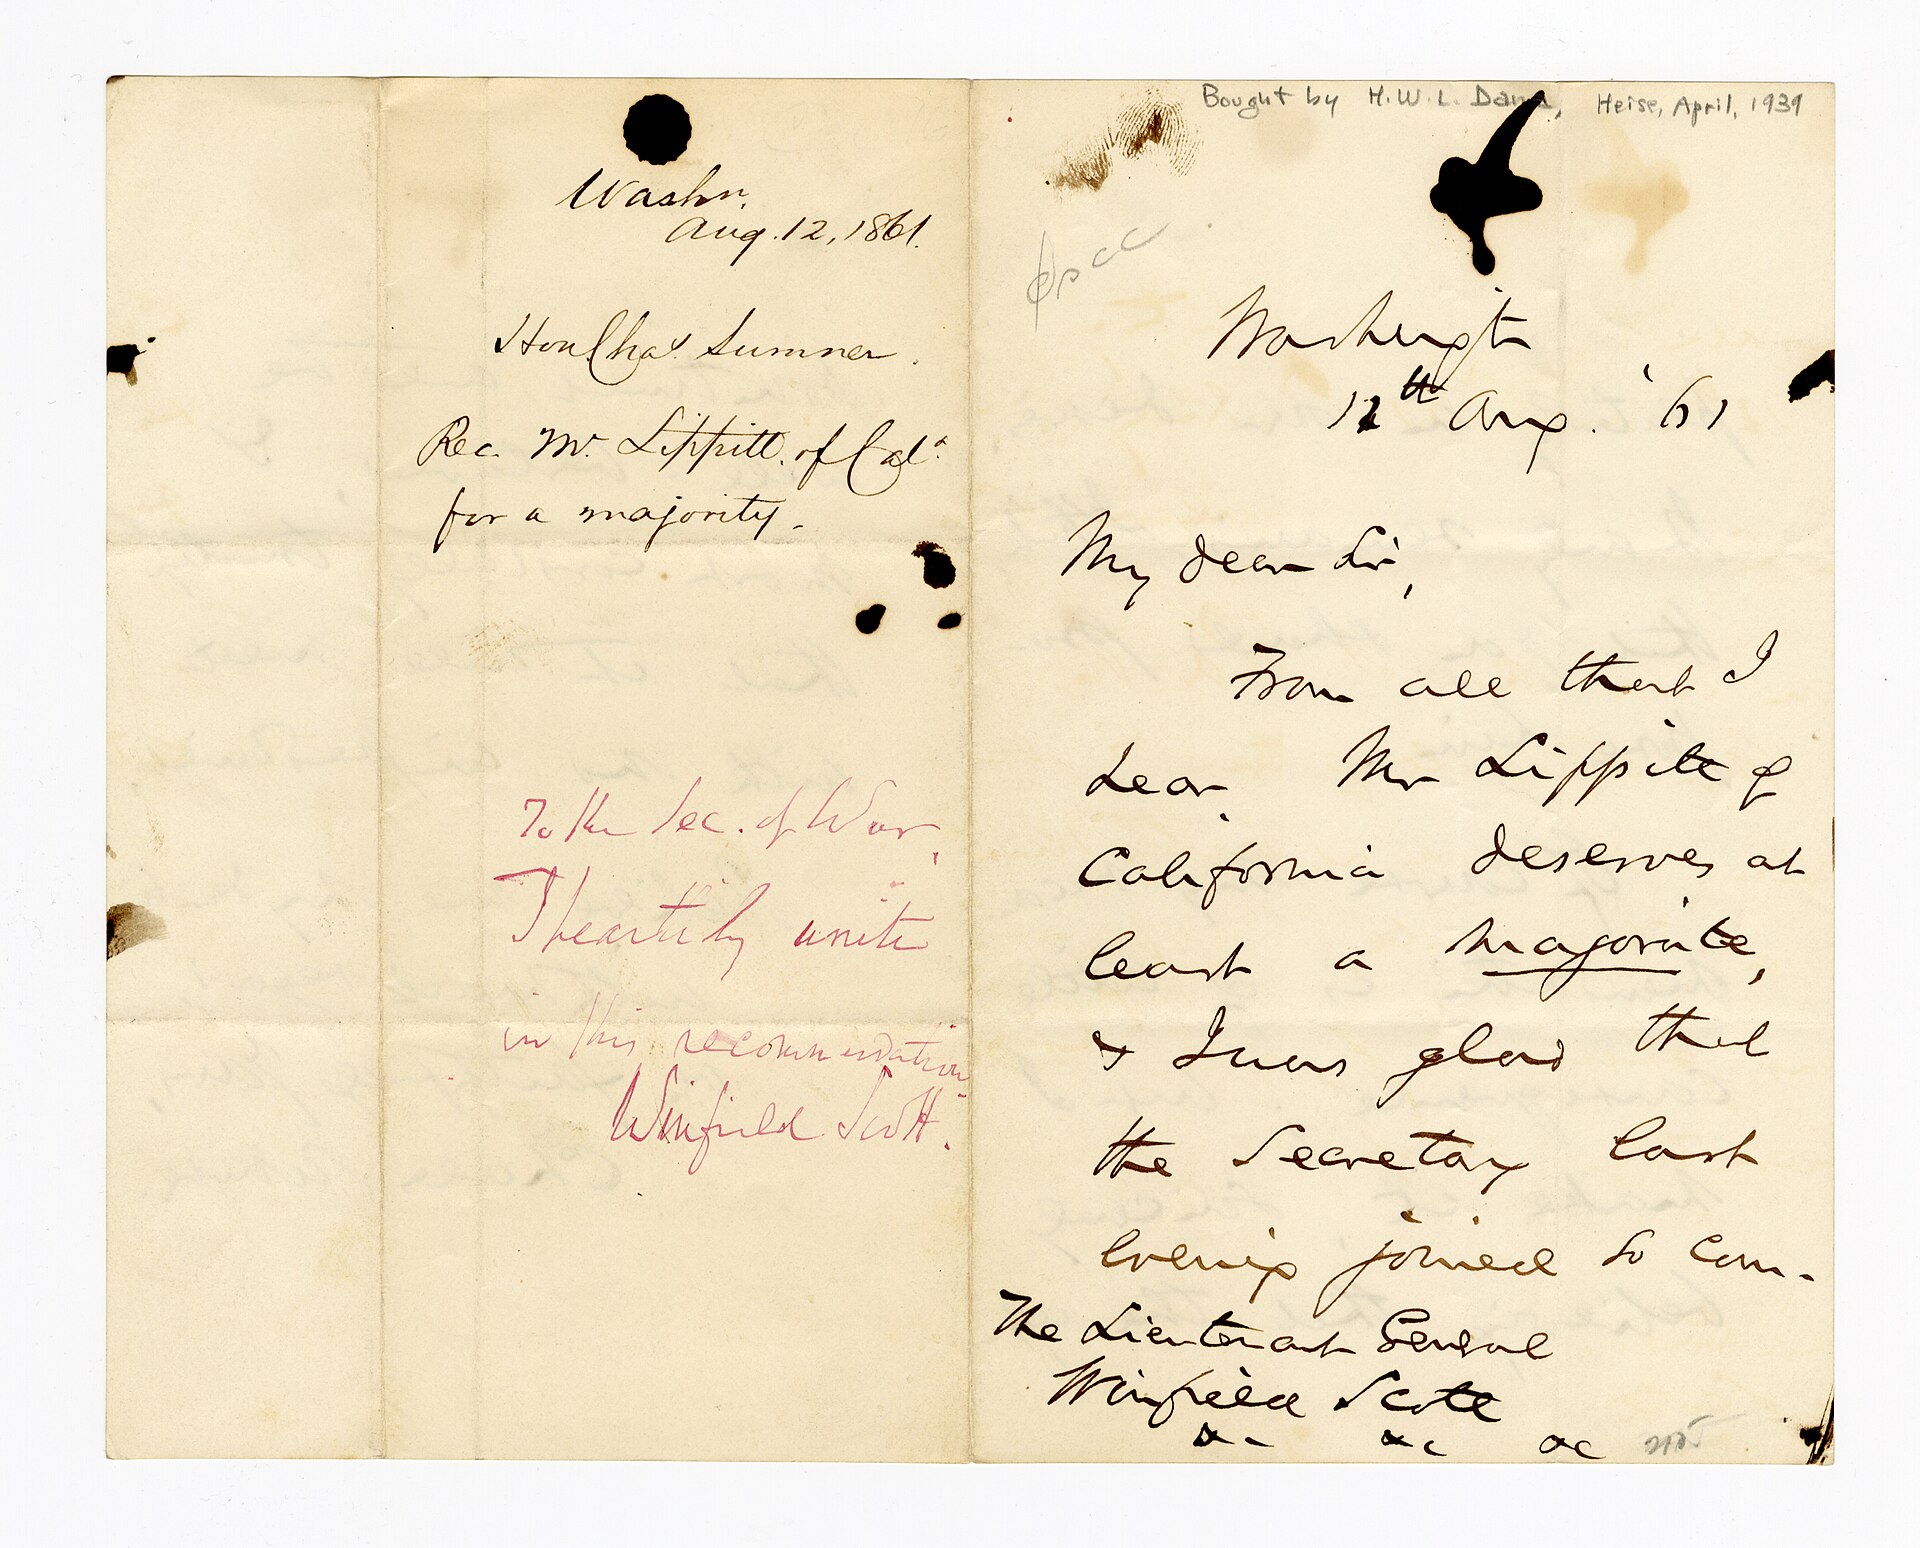 Washn.
Aug. 12, 1861.
Hon Chas. Sumner.
Rec. Mr. Lippitt. of Cala.
for a majority.
To the Sec. of War,
I heartily unite
in this recommendation
Winfield Scott.
Bought by H.W.L. Dana, Heise, April, 1939
Washington
12th Aug. '61
My dear Sir,
From all that I
hear Mr Lippitt of
California deserves at
least a majorite,
& I was glad that
the Secretary last
evening joined so com-
The Lieutenant General
Winfield Scott
&c &c &c